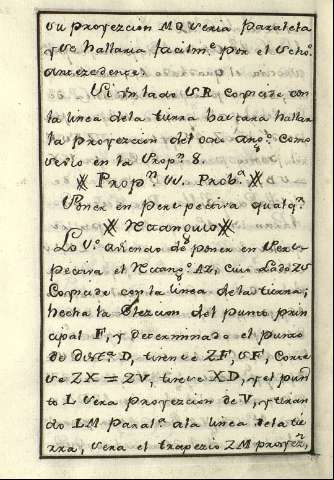 su proyeccion MQ seria paralela
y se hallaria facilm.e por el scho.
antecedente.
Si un lado SR coincide con
la linea de la tierra bastara hallar
la proyeccion del otro ang.o como
se vio en la Prop.n 8.
Prop.n Prob.a
Poner en perspectiva qualq.r
Rectangulo
Lo 1.o aviendo de poner en Pers-
pectiva el Rectang.o cuio lado ZV
Coincide con la linea de la tierra;
hecha la Eleccion del punto prin
cipal F, y determinado el punto
de dist.a D, tirense ZF, VF, Corte
se ZX = ZV, tirese XD, y el pun
to L sera proyeccion de V, y tiran
do LM paral.a a la linea de la tie
rra, sera el trapezio ZM proyec.n